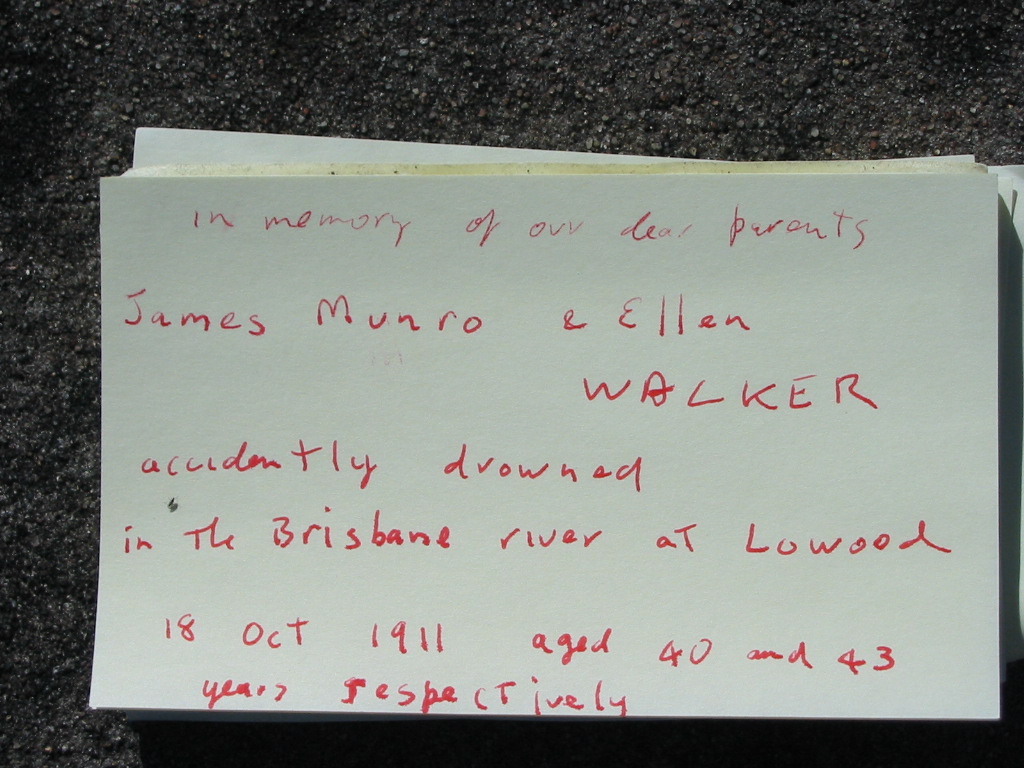 in memory of our dear parents
James Munro & Ellen
WALKER
accidently drowned
in the Brisbane river at Lowood
18 Oct 1911 aged 40 and 43
years respectively